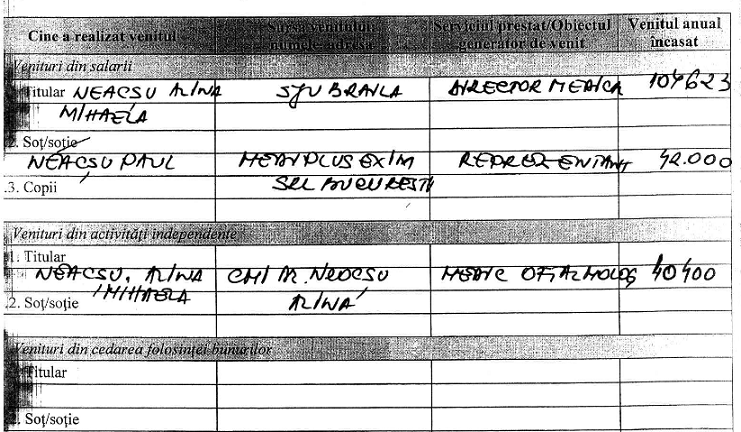 Cine a realizat venitul
Sursa venitului: numele, adresa
Serviciul prestat/Obiectul generator de venit
Venitul anual încasat
Venituri din salarii
Titular NEACSU ALINA MIHAELA
SJU BRAILA
DIRECTOR MEDICAL
104623
2. Soţ/soţie
NEACSU PAUL
MEDIPLUS EXIM SRL BUCURESTI
REPREZENTANT
42.000
.3. Copii
Venituri din activităţi independente
1. Titular
NEACSU. ALINA MIHAELA
CMI
ALINA
MEDIC OFTALMOLOG
40400
.2. Soţ/soţie
Venituri din cedarea folosinţei bunurilor
Titular
Soţ/soţie